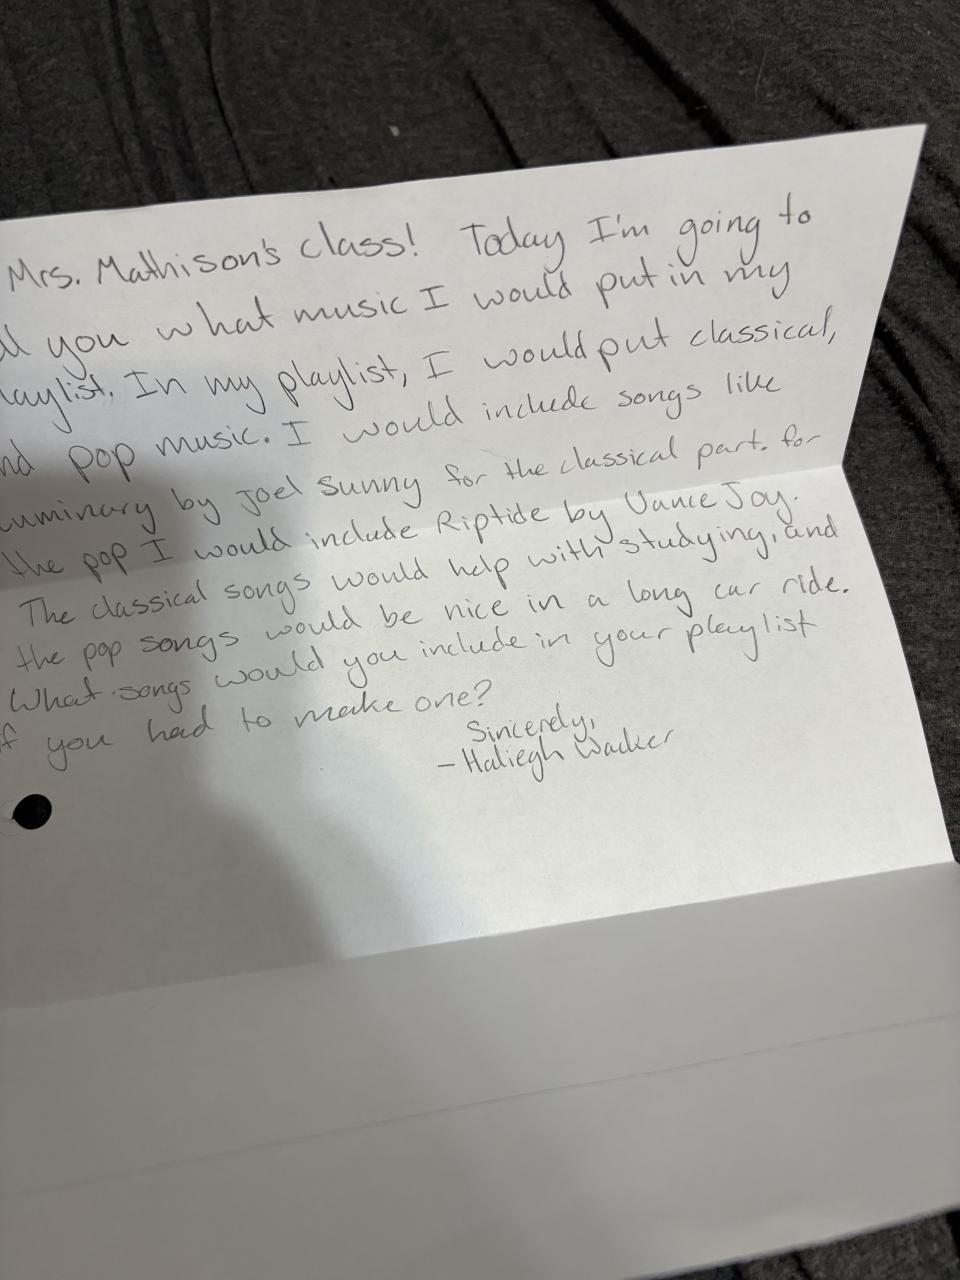 Mrs. Mathison's class! Today I'm going to
ll you what music I would put in my
laylist. In my playlist, I would put classical,
nd pop music. I would include songs like
uminary by Joel Sunny for the classical part. for
the pop I would include Riptide by Vance Joy.
The classical songs would help with studying, and
the pop songs would be nice in a long car ride.
What songs would you include in your playlist
if you had to make one?
Sincerely,
- Haliegh Wacker